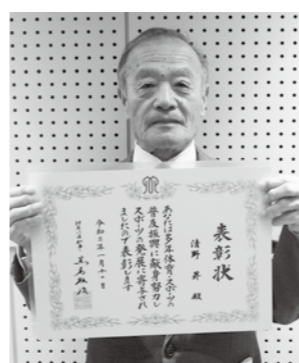 表彰状
清野昇殿
あなたは多年体育・スポーツの
普及振興に献身努力し
スポーツの発展に寄与され
ましたので表彰します
令和三年一月十一日